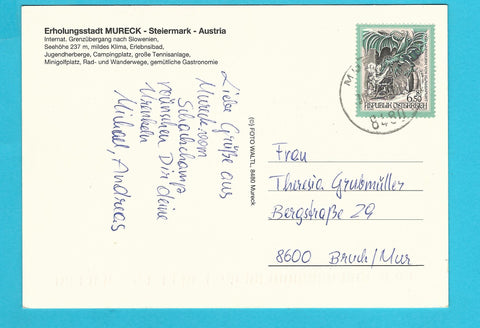 Erholungsstadt MURECK - Steiermark - Austria
Internat. Grenzübergang nach Slowenien,
Seehöhe 237 m, mildes Klima, Erlebnisbad,
Jugendherberge, Campingplatz, große Tennisanlage,
Minigolfplatz, Rad- und Wanderwege, gemütliche Gastronomie
Liebe Grüße aus
Mureck vom
wünschen Dir deine
Michael, Andreas
(c) FOTO WALTL, 8480 Mureck
8480
6.50
REPUBLIK ÖSTERREICH
Frau
Theresia Grubmüller
Bergstraße 29
8600 Bruck/Mur